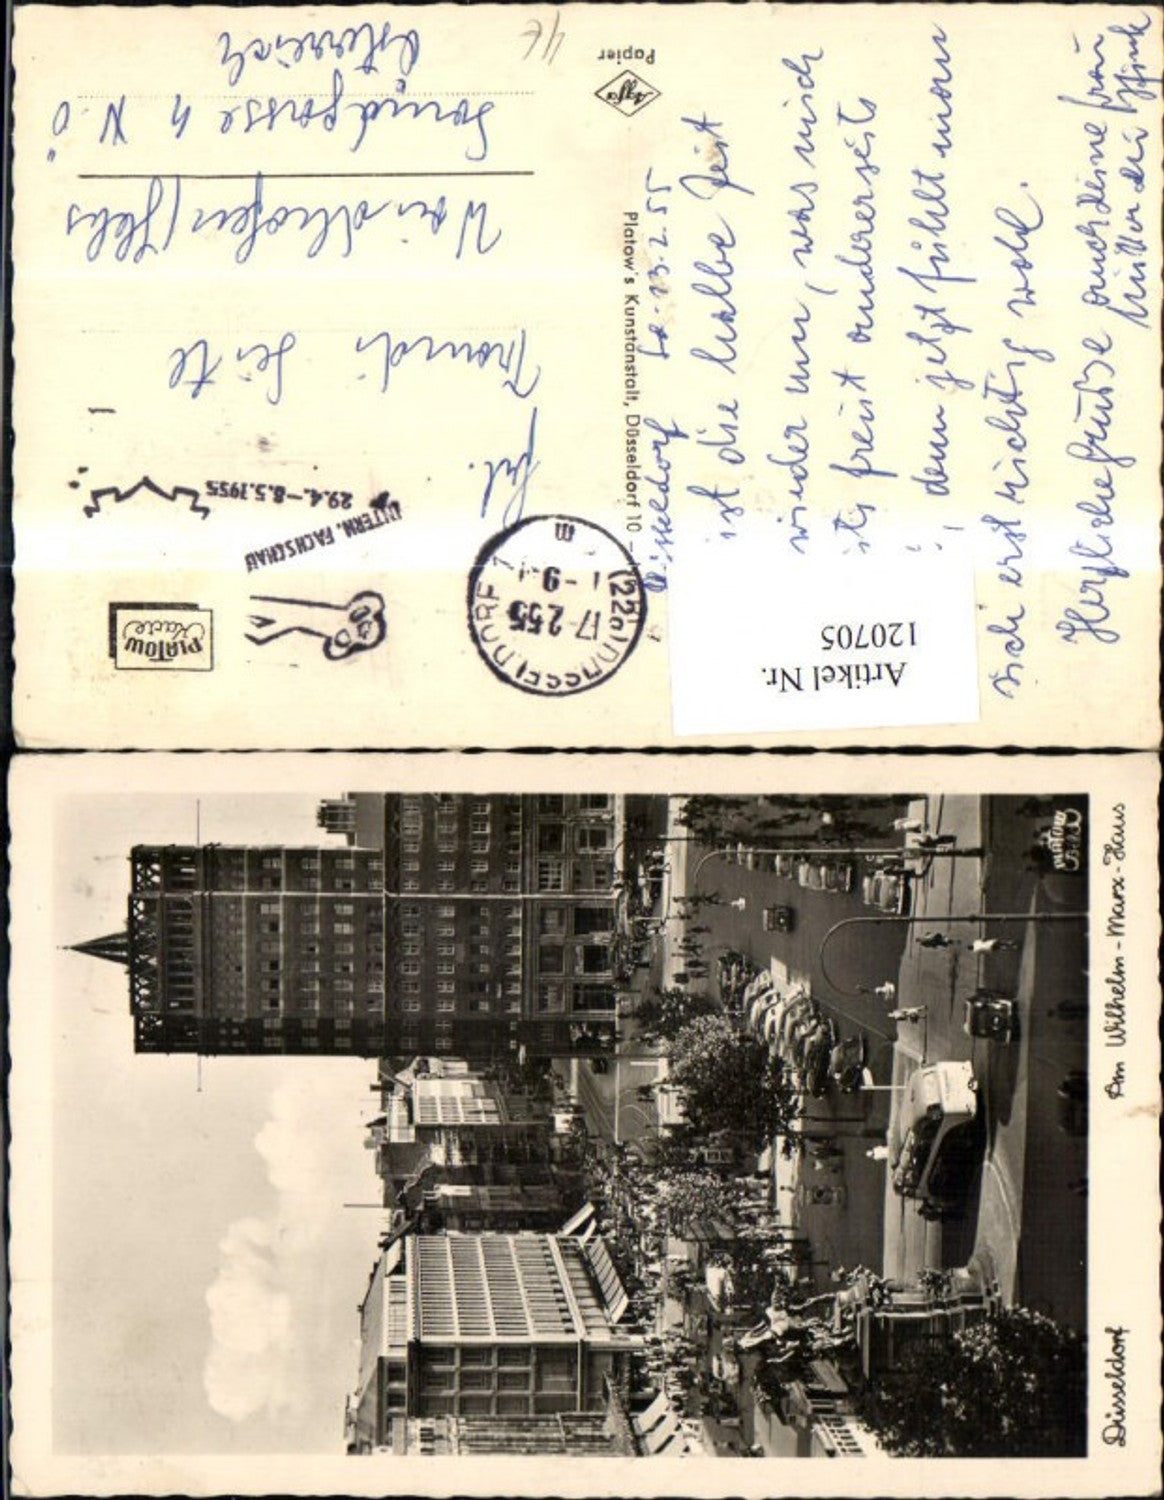 Düsseldorf 10-13.2.55
ist die halbe Zeit
wieder um, was mich
freut andererseits
denn jetzt fühlt man
sich erst richtig wohl.
Herzliche Grüße auch deine Frau
Mutter
Platow's Kunstanstalt, Düsseldorf 10
Agfa
Papier
4E
Artikel Nr.
120705
(22a) DÜSSELDORF 1
17.2.55
m
INTERN. FACHSCHAU
29.4.–8.5.1955
PLATOW
Karte
Frl.
Traudi
Waidhofen/Ybbs
4 N.Ö
Österreich
Düsseldorf
Am Wilhelm-Marx-Haus
PLATOW
Karte